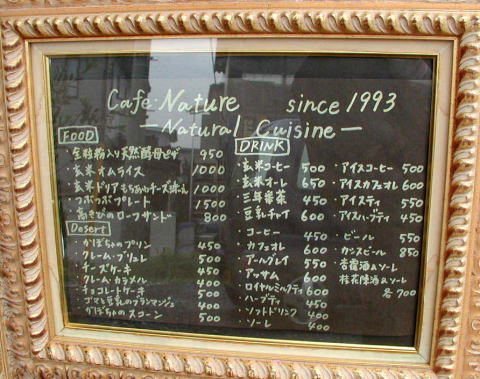 Cafe Nature since 1993
— Natural Cuisine —
FOOD
・全粒粉入り天然酵母ピザ 950
・玄米オムライス 1000
・玄米ドリアもちあわチーズ味 1000
・つぶつぶプレート 1500
・高きびのローフサンド 800
Desert
・かぼちゃのプリン 450
・クレーム・ブリュレ 500
・チーズケーキ 450
・クレーム・カラメル 400
・チョコレートケーキ 500
・ゴマと豆乳のブランマンジェ 400
・かぼちゃのスコーン 500
DRINK
・玄米コーヒー 500
・玄米オーレ 650
・三年番茶 450
・豆乳チャイ 600
・コーヒー 450
・カフェオレ 600
・アールグレイ 550
・アッサム 600
・ロイヤルミルクティ 600
・ハーブティ 450
・ソフトドリンク 400
・ソーレ 400
・アイスコーヒー 500
・アイスカフェオレ 600
・アイスティ 550
・アイスハーブティ 450
・ビール 550
・カンスビール 850
・杏露酒&ソーレ
桂花陳酒&ソーレ
各700